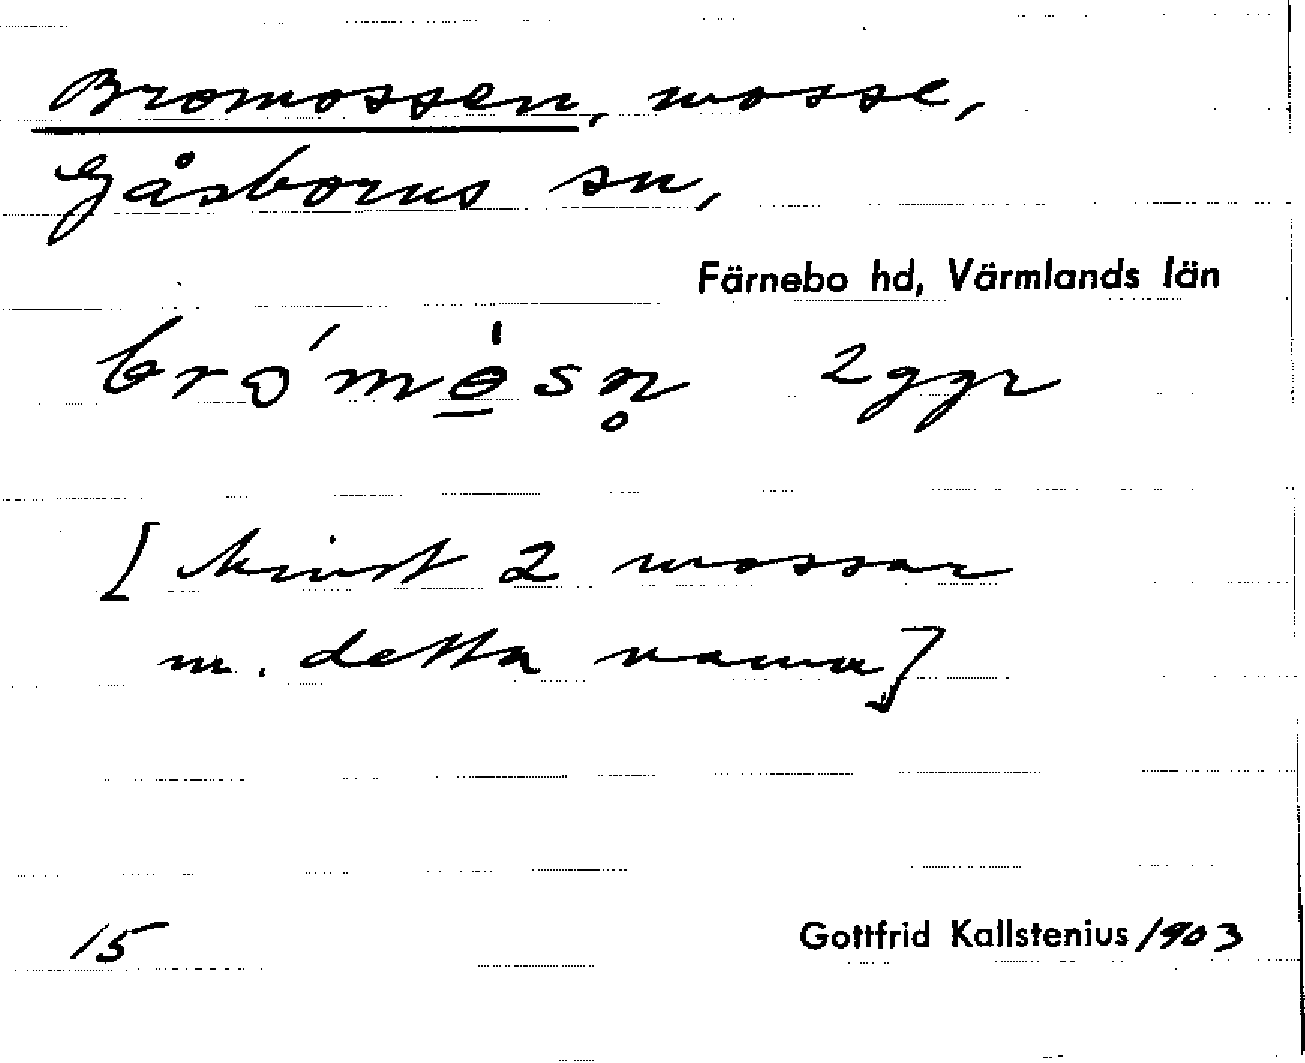 Bromossen, mosse,
Gåsborns sn,
Färnebo hd, Värmlands län
bró mö̀sn̥ 2 ggr
[ Minst 2 mossar
m. detta namn]
15 Gottfrid Kallstenius /903